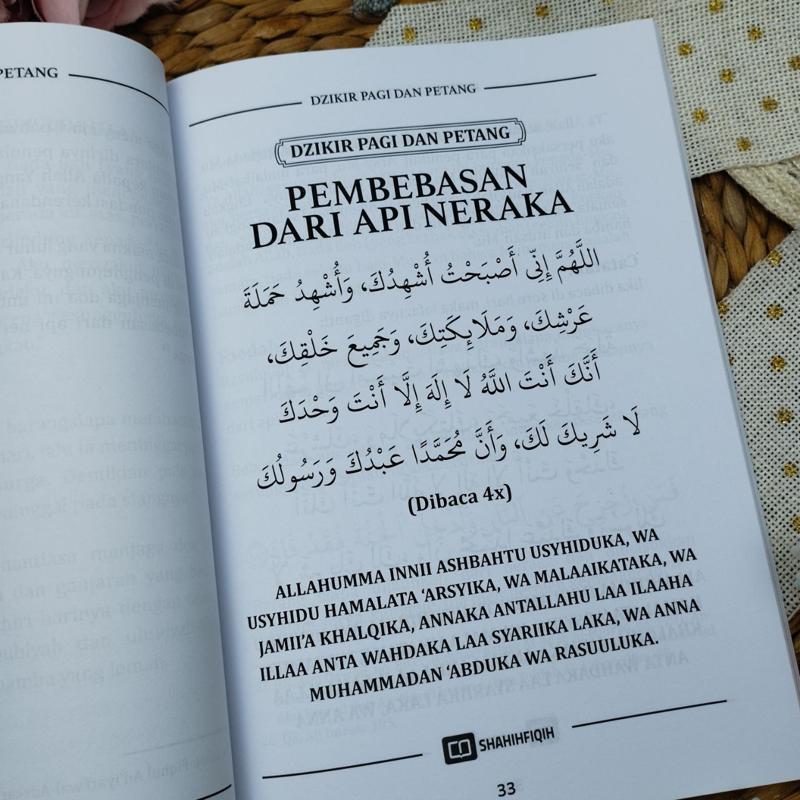 PETANG
DZIKIR PAGI DAN PETANG
DZIKIR PAGI DAN PETANG
PEMBEBASAN
DARI API NERAKA
اللَّهُمَّ إِنِّي أَصْبَحْتُ أُشْهِدُكَ، وَأُشْهِدُ حَمَلَةَ
عَرْشِكَ، وَمَلَائِكَتِكَ، وَجَمِيعَ خَلْقِكَ،
أَنَّكَ أَنْتَ اللَّهُ لَا إِلَهَ إِلَّا أَنْتَ وَحْدَكَ
لَا شَرِيكَ لَكَ، وَأَنَّ مُحَمَّدًا عَبْدُكَ وَرَسُولُكَ
(Dibaca 4x)
ALLAHUMMA INNII ASHBAHTU USYHIDUKA, WA
USYHIDU HAMALATA ‘ARSYIKA, WA MALAAIKATAKA, WA
JAMII’A KHALQIKA, ANNAKA ANTALLAHU LAA ILAAHA
ILLAA ANTA WAHDAKA LAA SYARIIKA LAKA, WA ANNA
MUHAMMADAN ‘ABDUKA WA RASUULUKA.
SHAHIHFIQIH
33